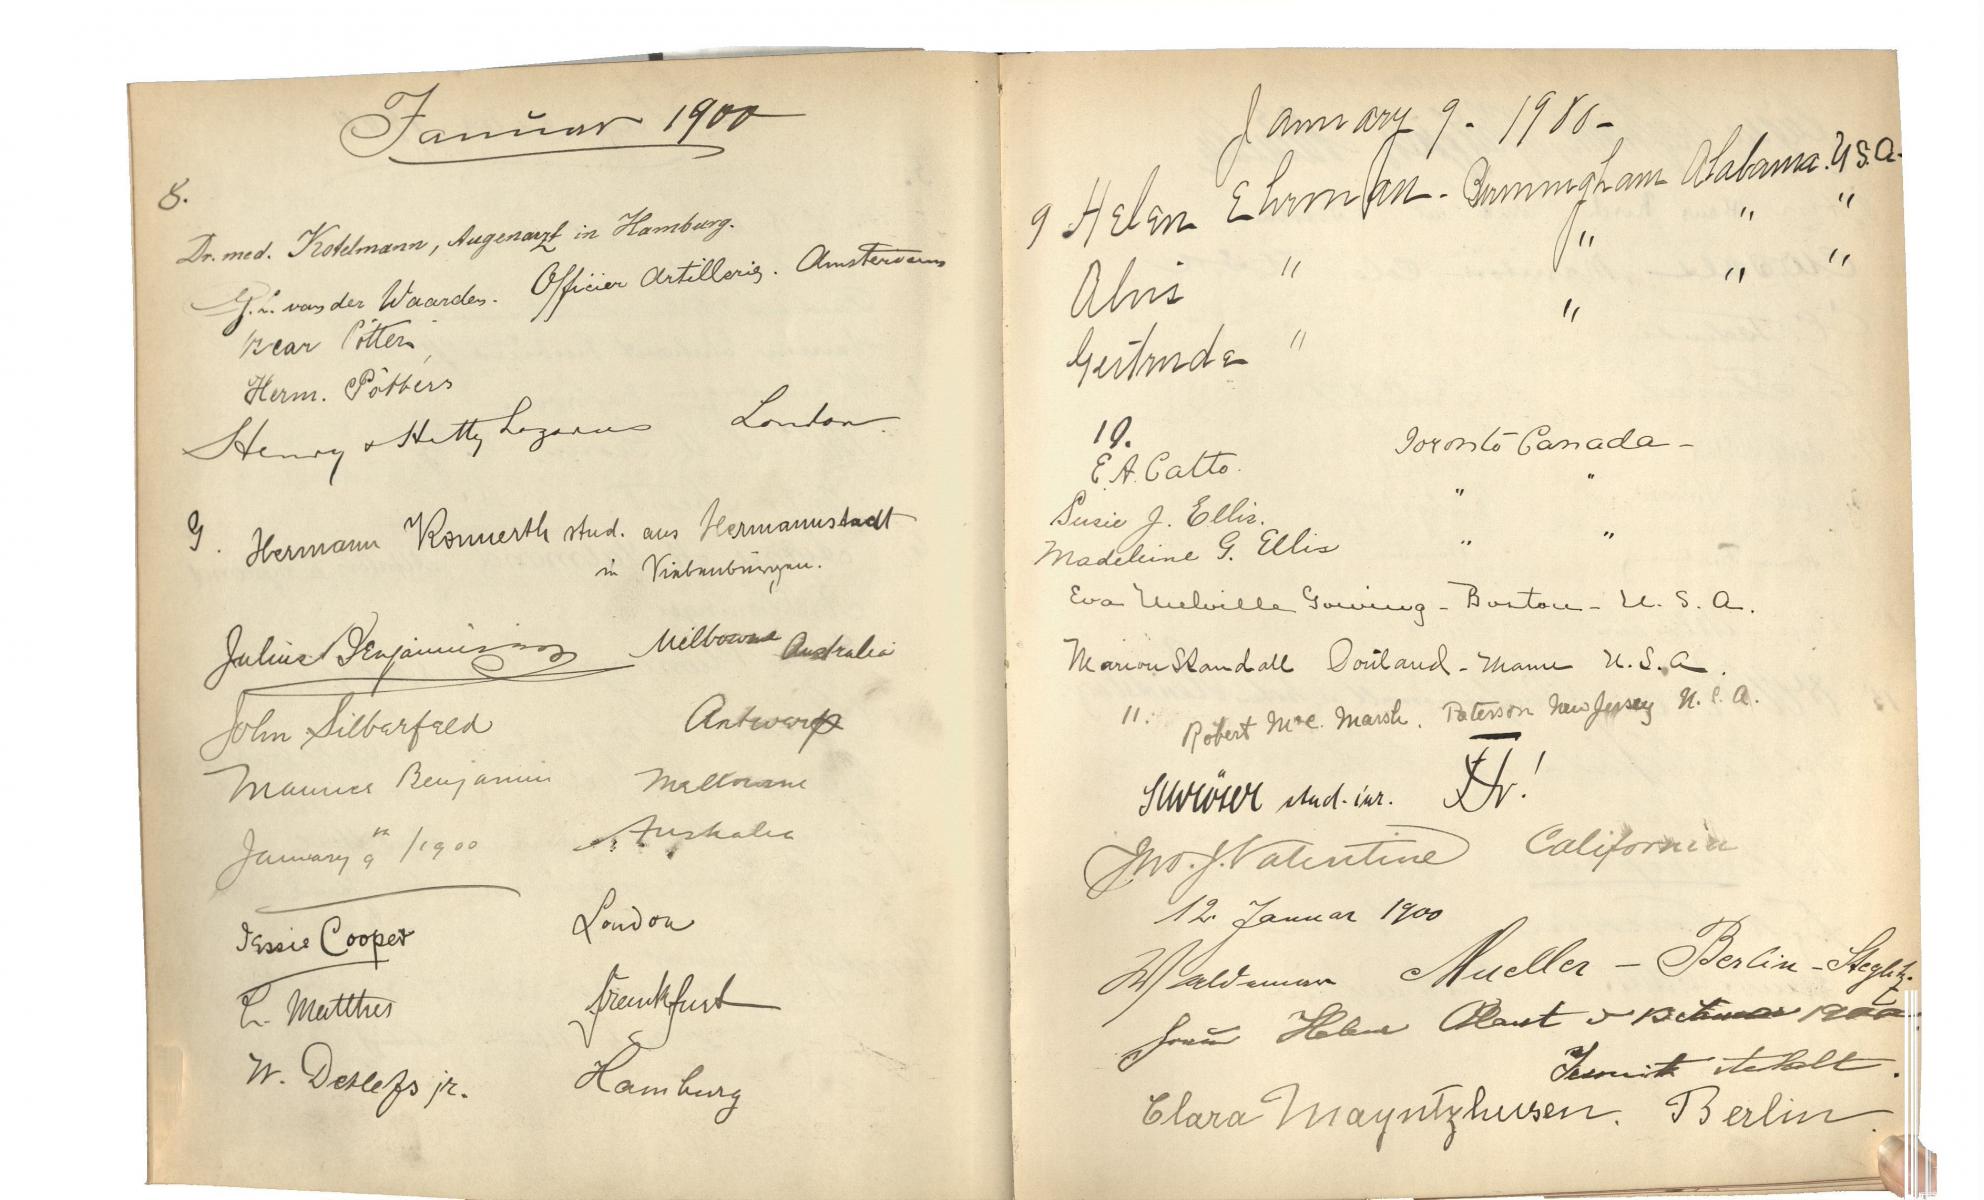 Januar 1900
8.
Dr. med. Kotelmann, Augenarzt in Hamburg.
G. L. van der Waarden. Officier Artillerie. Amsterdam
Herm. Pötters
Henry & Hetty Lazarus London
9. Hermann Konnerth stud. aus Hermannstadt
in Siebenbürgen.
Julius Benjamin Melbourne Australia
John Silberfeld Antwerp
Maurice Benjamin Melbourne
January 9th /1900 Australia
Jessie Cooper London
L. Matthes Frankfurt
W. Detlefs jr. Hamburg
January 9 - 1900 -
9 Helen Ehrman - Birmingham Alabama. U.S.A.
" " "
Alvis "
" " "
Gertrude "
10.
E. A. Catto. Toronto Canada -
Susie J. Ellis. " "
Madeleine G. Ellis " "
Eva Melville Gowing - Boston - U. S. A.
Marion Randall Portland - Maine U. S. A.
11. Robert McC. Marsh. Paterson New Jersey U. S. A.
stud. iur.
Jno. J. Valentine California
12. Januar 1900
Waldemar Mueller - Berlin - Steglitz.
Helene 1900
Clara Mayntzhusen. Berlin